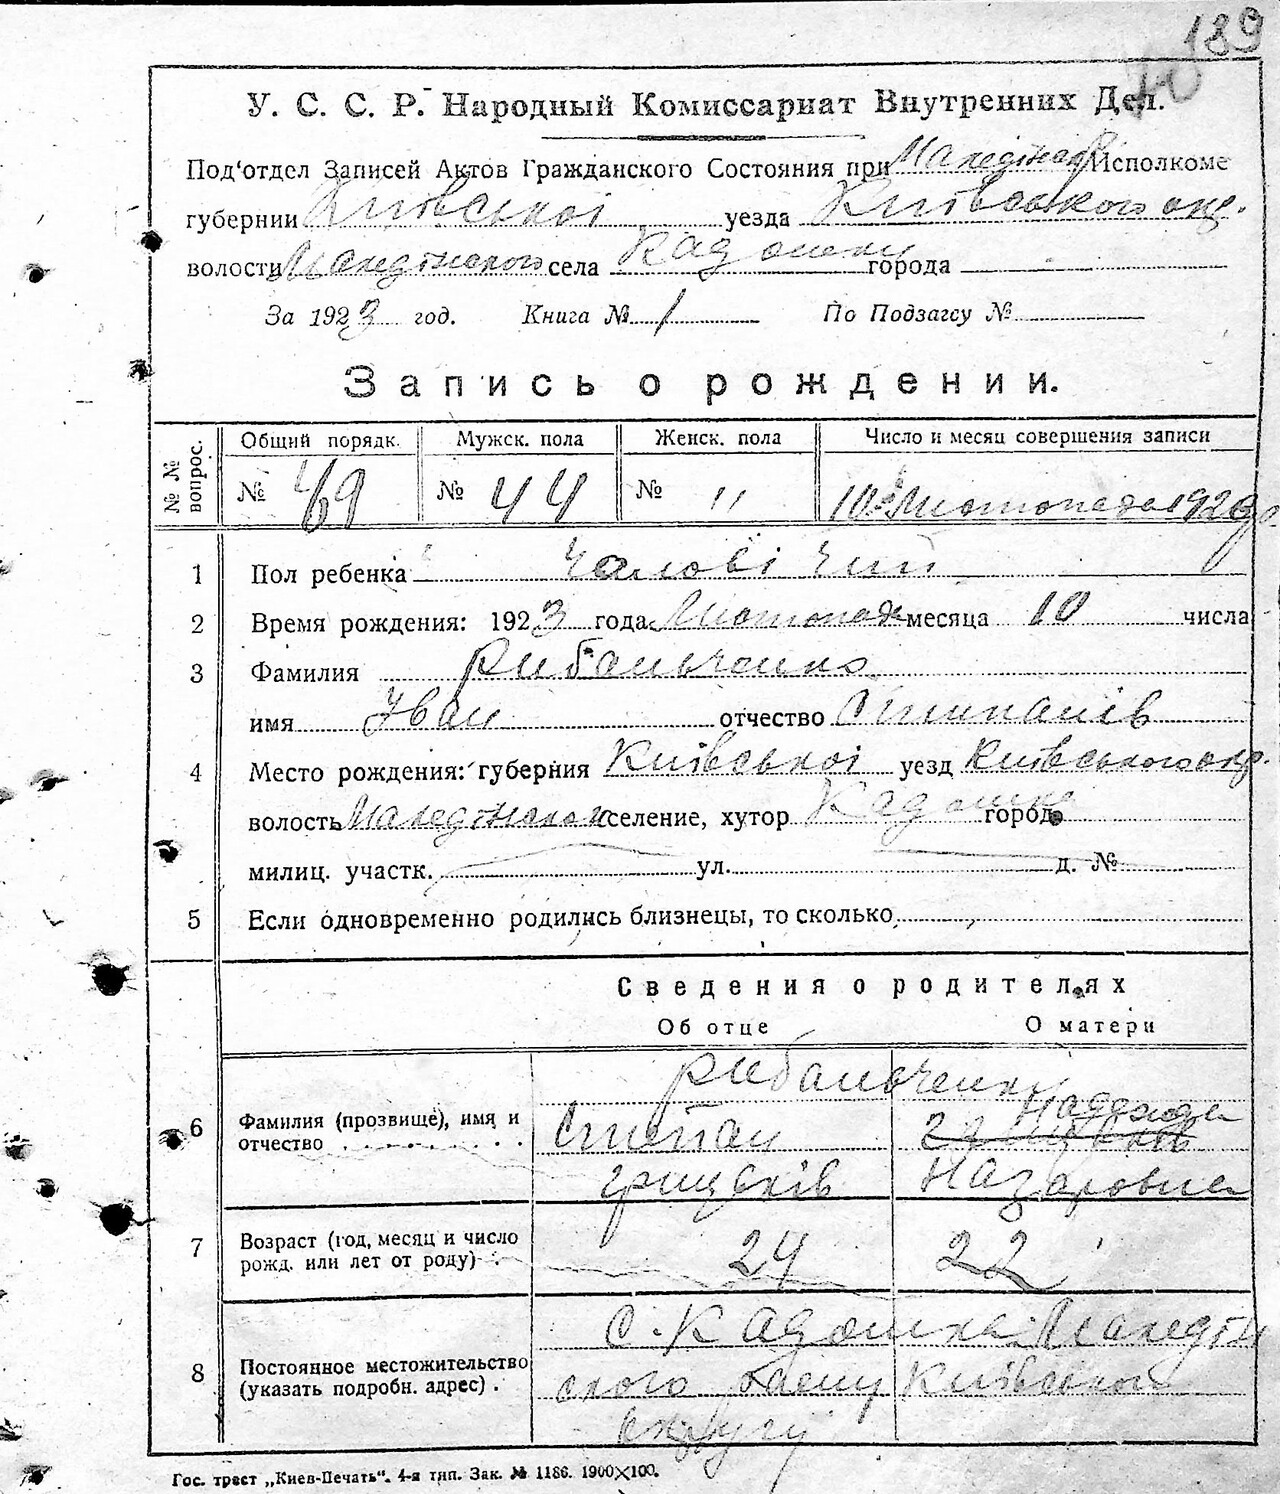 189
У. С. С. Р. Народный Комиссариат Внутренних Дел.
Под'отдел Записей Актов Гражданского Состояния при Исполкоме
губернии Київської уезда Київського окр.
волости села Кадомка города
За 1923 год. Книга № 1 По Подзагсу №
Запись о рождении.
№№ вопрос.
Общий порядк. Мужск. пола Женск. пола Число и месяц совершения записи
№ 69 № 44 № " 10 Листопада 1923
1 Пол ребенка Чаловічий
2 Время рождения: 1923 года Листопада месяца 10 числа
3 Фамилия Рибальченко
имя Іван отчество Степанів
4 Место рождения: губерния Київської уезд Київського окр.
волость селение, хутор Кадомка город
милиц. участк. ул. д. №
5 Если одновременно родились близнецы, то сколько
Сведения о родителях
Об отце О матери
Рибальченко
6 Фамилия (прозвище), имя и
отчество Степан
Грицьків Назаровна
7 Возраст (год, месяц и число
рожд. или лет от роду) 24 22
С. Кадомка
8 Постоянное местожительство
(указать подробн. адрес). ского Київської
округу
Гос. трест „Киев-Печать“. 4-я тип. Зак. № 1186. 1900×100.